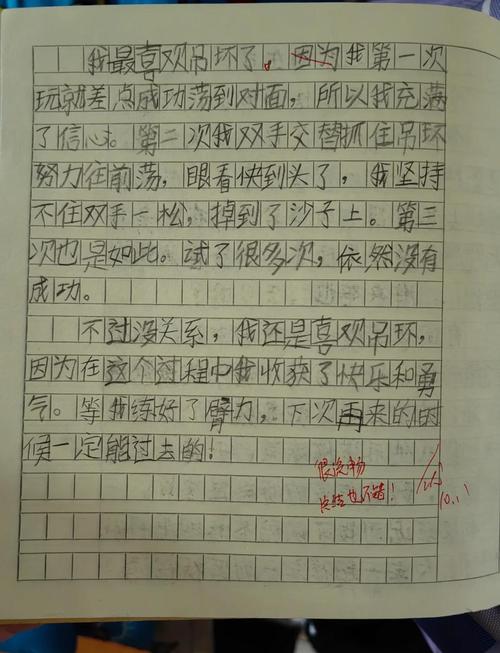 我最喜欢吊坏了。因为我第一次
玩就差点成功荡到对面，所以我充满
了信心。第二次我双手交替抓住吊环
努力往前荡，眼看快到头了，我坚持
不住双手一松，掉到了沙子上。第三
次也是如此。试了很多次，依然没有
成功。
不过没关系，我还是喜欢吊环，
因为在这个过程中我收获了快乐和勇
气。等我练好了臂力，下次再来的时
候一定能过去的！
很流畅
总结也不错！
10.11